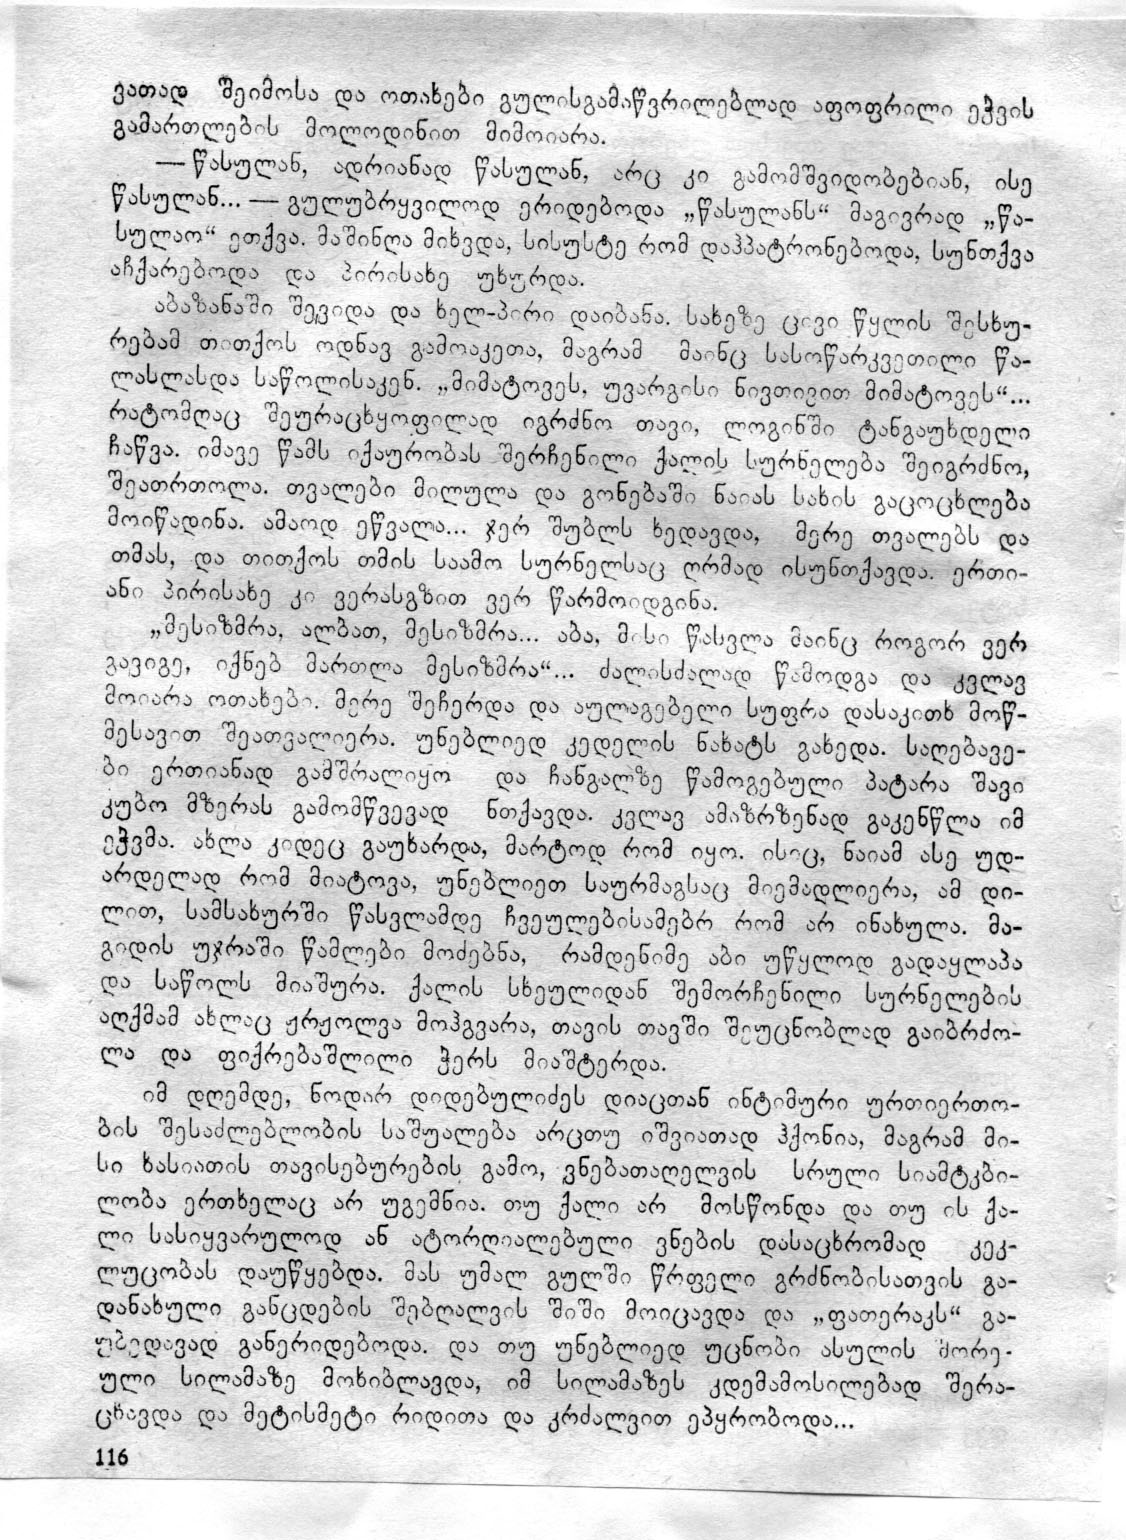 ვათად შეიმოსა და ოთახები გულისგამაწვრილებლად აფოფრილი ეჭვის
გამართლების მოლოდინით მიმოიარა.
— წასულან, ადრიანად წასულან, არც კი გამომშვიდობებიან, ისე
წასულან... — გულუბრყვილოდ ერიდებოდა „წასულანს“ მაგივრად „წა-
სულაო“ ეთქვა. მაშინღა მიხვდა, სისუსტე რომ დაჰპატრონებოდა, სუნთქვა
აჩქარებოდა და პირისახე უხურდა.
აბაზანაში შევიდა და ხელ-პირი დაიბანა. სახეზე ცივი წყლის შესხუ-
რებამ თითქოს ოდნავ გამოაკეთა, მაგრამ მაინც სასოწარკვეთილი წა-
ლასლასდა საწოლისაკენ. „მიმატოვეს, უვარგისი ნივთივით მიმატოვეს“...
რატომღაც შეურაცხყოფილად იგრძნო თავი, ლოგინში ტანგაუხდელი
ჩაწვა. იმავე წამს იქაურობას შერჩენილი ქალის სურნელება შეიგრძნო,
შეათრთოლა. თვალები მილულა და გონებაში ნაიას სახის გაცოცხლება
მოიწადინა. ამაოდ ეწვალა... ჯერ შუბლს ხედავდა, მერე თვალებს და
თმას, და თითქოს თმის საამო სურნელსაც ღრმად ისუნთქავდა. ერთი-
ანი პირისახე კი ვერასგზით ვერ წარმოიდგინა.
„მესიზმრა, ალბათ, მესიზმრა... აბა, მისი წასვლა მაინც როგორ ვერ
გავიგე, იქნებ მართლა მესიზმრა“... ძალისძალად წამოდგა და კვლავ
მოიარა ოთახები. მერე შეჩერდა და აულაგებელი სუფრა დასაკითხ მოწ-
მესავით შეათვალიერა. უნებლიედ კედელის ნახატს გახედა. საღებავე-
ბი ერთიანად გამშრალიყო და ჩანგალზე წამოგებული პატარა შავი
კუბო მზერას გამომწვევად ნთქავდა. კვლავ ამაზრზენად გაკენწლა იმ
ეჭვმა. ახლა კიდეც გაუხარდა, მარტოდ რომ იყო. ისიც, ნაიამ ასე უდ-
არდელად რომ მიატოვა, უნებლიეთ საურმაგსაც მიემადლიერა, ამ დი-
ლით, სამსახურში წასვლამდე ჩვეულებისამებრ რომ არ ინახულა. მა-
გიდის უჯრაში წამლები მოძებნა, რამდენიმე აბი უწყლოდ გადაყლაპა
და საწოლს მიაშურა. ქალის სხეულიდან შემორჩენილი სურნელების
აღქმამ ახლაც ჟრჟოლვა მოჰგვარა, თავის თავში შეუცნობლად გაიბრძო-
ლა და ფიქრებაშლილი ჭერს მიაშტერდა.
იმ დღემდე, ნოდარ დიდებულიძეს დიაცთან ინტიმური ურთიერთო-
ბის შესაძლებლობის საშუალება არცთუ იშვიათად ჰქონია, მაგრამ მი-
სი ხასიათის თავისებურების გამო, ვნებათაღელვის სრული სიამტკბი-
ლობა ერთხელაც არ უგემნია. თუ ქალი არ მოსწონდა და თუ ის ქა-
ლი სასიყვარულოდ ან ატორღიალებული ვნების დასაცხრომად კეკ-
ლუცობას დაუწყებდა. მას უმალ გულში წრფელი გრძნობისათვის გა-
დანახული განცდების შებღალვის შიში მოიცავდა და „ფათერაკს“ გა-
უბედავად განერიდებოდა. და თუ უნებლიედ უცნობი ასულის შორე-
ული სილამაზე მოხიბლავდა, იმ სილამაზეს კდემამოსილებად შერა-
ცხავდა და მეტისმეტი რიდითა და კრძალვით ეპყრობოდა...
116